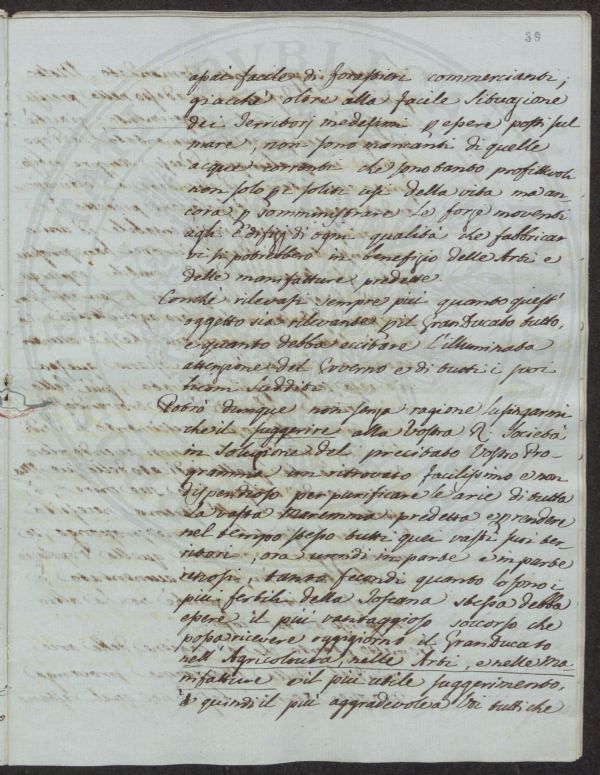 39
assai facile di forastieri commercianti;
giacchè oltre alla facile situazione
dei Territorj medesimi p essere posti sul
mare, non sono mancanti di quelle
acque correnti che sono tanto profittevoli
non solo p i soliti usi della vita ma an
cora p somministrare le forze moventi
agli Edifizj di ogni qualità che fabbricar
vi si potrebbero in benefizio delle Arti e
delle manifatture predette
Conchè rilevasi sempre più quanto quest'
oggetto sia rilevante p il GranDucato tutto,
e quanto debba eccitare l'illuminata
attenzione del Governo e di tutti i suoi
Sudditi.
Potrò dunque non senza ragione lusingarmi
che il suggerire alla Vostra R. Società
in soluzione del precitato Vostro Pro
gramma un ritrovato facilissimo e non
dispendioso per purificare le arie di tutta
la vasta Maremma predetta e prendere
nel tempo stesso tutti quei vasti suoi ter
ritorj, ora umidi in parte e in parte
, tanto fecondi quanto lo sono i
più fertili della Toscana stessa debba
essere il più vantaggioso soccorso che
possa ricevere oggigiorno il GranDucato
nell' Agricoltura, nelle Arti, e nelle Ma
nifatture e il più utile suggerimento,
e quindi il più aggradevole a Voi tutti che